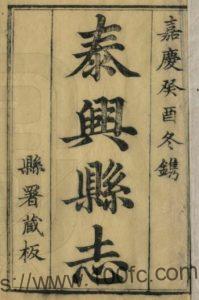 嘉慶癸酉冬鐫
泰興縣志
縣署藏板
s://www.100fc.com